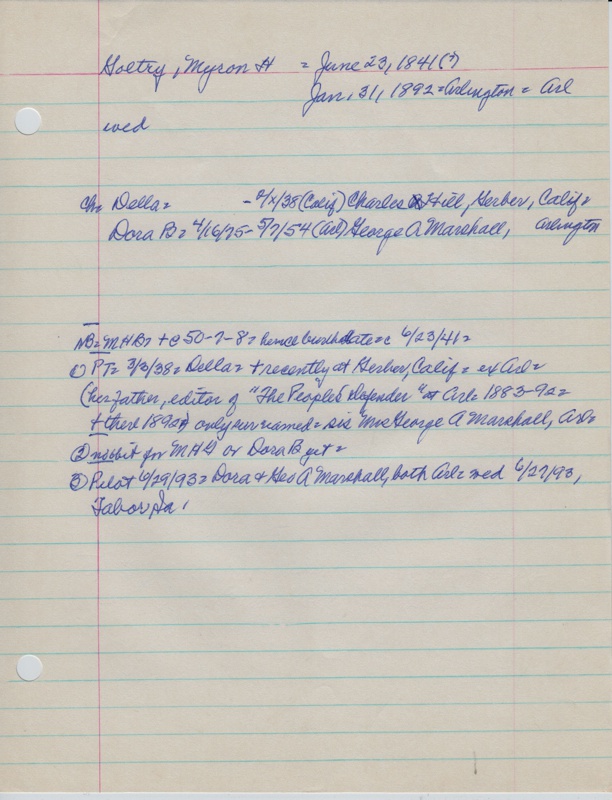 Goltry, Myron H = June 23, 1841(?)
Jan. 31, 1892 = Arlington = Arl
wed
ch = Della = - 2/x/38 (Calif) Charles Hill, Gerber, Calif =
Dora B = 4/16/75 - 5/7/54 (Arl) George A Marshall, Arlington
NB = MHG = + @ 50-7-8 = hence birthdate = c 6/23/41 =
① PT = 3/3/38 = Della = + recently at Gerber, Calif = ex Arl =
(her father, editor of "The People's Defender" at Arl = 1883-92 =
+ there 1892) only sur named = sis Mrs George A Marshall, Arl =
② no obit for MHG or Dora B yet =
③ Pilot 6/29/93 = Dora & Geo A Marshall, both Arl = wed 6/27/93,
Tabor, Ia.